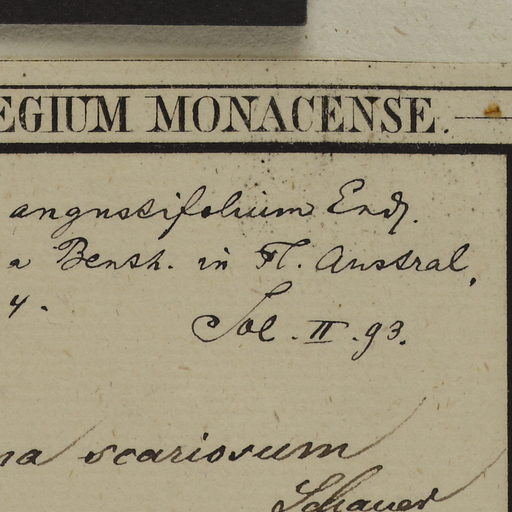 EGIUM MONACENSE.
angustifolium Endl.
a Benth. in Fl. Austral.
4.
Sol. II. 93.
na scariosum
Schauer